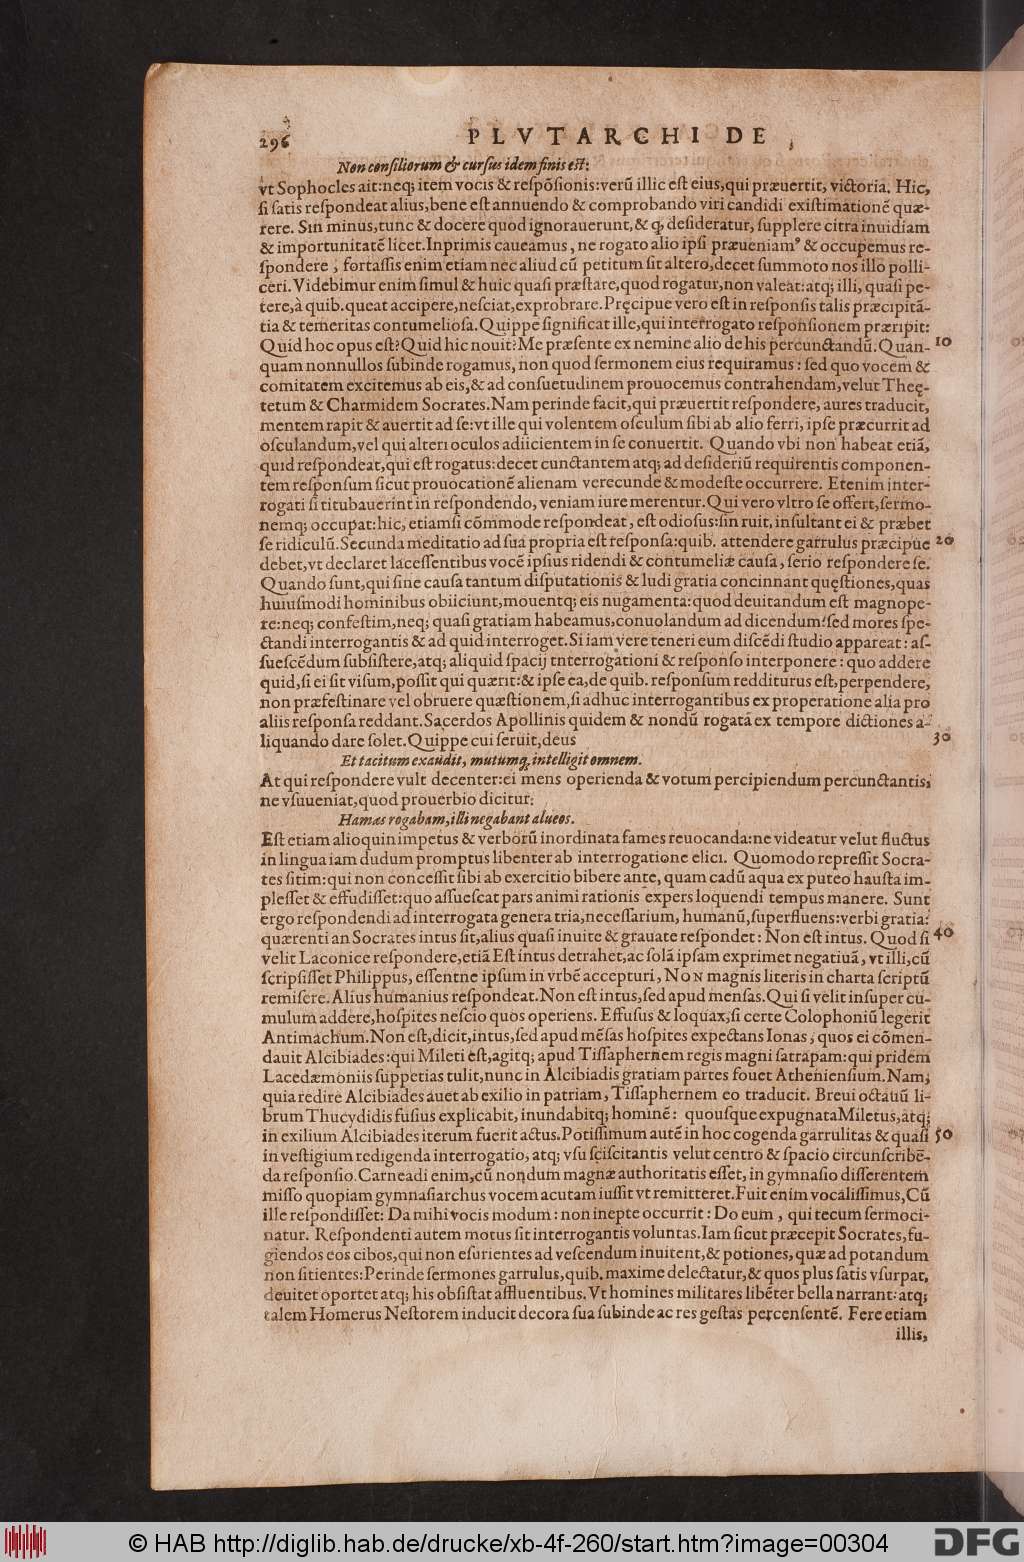 296 PLVTARCHI DE
Non consiliorum & cursus idem finis est:
vt Sophocles ait:neq; item vocis & respõsionis:verũ illic est eius,qui præuertit, victoria. Hic,
si satis respondeat alius,bene est annuendo & comprobando viri candidi existimationẽ quæ-
rere. Sin minus,tunc & docere quod ignorauerunt,& q̨ desideratur, supplere citra inuidiam
& importunitatẽ licet.Inprimis caueamus, ne rogato alio ipsi præueniamꝰ & occupemus re-
spondere, fortassis enim etiam nec aliud cũ petitum sit altero,decet summoto nos illo polli-
ceri.Videbimur enim simul & huic quasi præstare,quod rogatur,non valeat:atq; illi, quasi pe-
tere,à quib.queat accipere,nesciat,exprobrare.Pręcipue vero est in responsis talis præcipitã-
tia & temeritas contumeliosa.Quippe significat ille,qui interrogato responsionem præripit:
Quid hoc opus est?Quid hic nouit?Me præsente ex nemine alio de his percunctandũ.Quan- 10
quam nonnullos subinde rogamus, non quod sermonem eius requiramus: sed quo vocem &
comitatem excitemus ab eis,& ad consuetudinem prouocemus contrahendam,velut Theę-
tetum & Charmidem Socrates.Nam perinde facit,qui præuertit respondere, aures traducit,
mentem rapit & auertit ad se:vt ille qui volentem osculum sibi ab alio ferri, ipse præcurrit ad
osculandum,vel qui alteri oculos adiicientem in se conuertit. Quando vbi non habeat etiã,
quid respondeat,qui est rogatus:decet cunctantem atq; ad desideriũ requirentis componen-
tem responsum sicut prouocationẽ alienam verecunde & modeste occurrere. Etenim inter-
rogati si titubauerint in respondendo, veniam iure merentur.Qui vero vltro se offert,sermo-
nemq; occupat:hic, etiamsi cõmode respondeat, est odiosus:sin ruit, insultant ei & præbet
se ridiculũ.Secunda meditatio ad sua propria est responsa:quib. attendere garrulus præcipue 20
debet,vt declaret lacessentibus vocẽ ipsius ridendi & contumeliæ causa, serio respondere se.
Quando sunt,qui sine causa tantum disputationis & ludi gratia concinnant quęstiones,quas
huiusmodi hominibus obiiciunt,mouentq; eis nugamenta:quod deuitandum est magnope-
re:neq; confestim,neq; quasi gratiam habeamus,conuolandum ad dicendum:sed mores spe-
ctandi interrogantis & ad quid interroget.Si iam vere teneri eum discẽdi studio appareat: as-
suescẽdum subsistere,atq; aliquid spacij tnterrogationi & responso interponere: quo addere
quid,si ei sit visum,possit qui quærit:& ipse ea,de quib. responsum redditurus est,perpendere,
non præfestinare vel obruere quæstionem,si adhuc interrogantibus ex properatione alia pro
aliis responsa reddant.Sacerdos Apollinis quidem & nondũ rogatã ex tempore dictiones a-
liquando dare solet.Quippe cui seruit,deus 30
Et tacitum exaudit, mutumq̨, intelligit omnem.
At qui respondere vult decenter:ei mens operienda & votum percipiendum percunctantis,
ne vsuueniat,quod prouerbio dicitur:
Hamas rogabam,illi negabant alueos.
Est etiam alioquin impetus & verborũ inordinata fames reuocanda:ne videatur velut fluctus
in lingua iam dudum promptus libenter ab interrogatione elici. Quomodo repressit Socra-
tes sitim:qui non concessit sibi ab exercitio bibere ante, quam cadũ aqua ex puteo hausta im-
plesset & effudisset:quo assuescat pars animi rationis expers loquendi tempus manere. Sunt
ergo respondendi ad interrogata genera tria,necessarium, humanũ,superfluens:verbi gratia:
quærenti an Socrates intus sit,alius quasi inuite & grauate respondet: Non est intus. Quod si 40
velit Laconice respondere,etiã Est intus detrahet,ac solã ipsam exprimet negatiuã, vt illi,cũ
scripsisset Philippus, essentne ipsum in vrbẽ accepturi, NON magnis literis in charta scriptũ
remisere.Alius humanius respondeat.Non est intus,sed apud mensas.Qui si velit insuper cu-
mulum addere,hospites nescio quos operiens. Effusus & loquax,si certe Colophoniũ legerit
Antimachum.Non est,dicit,intus,sed apud mẽsas hospites expectans Ionas, quos ei cõmen-
dauit Alcibiades:qui Mileti est,agitq; apud Tissaphernem regis magni satrapam:qui pridem
Lacedæmoniis suppetias tulit,nunc in Alcibiadis gratiam partes fouet Atheniensium.Nam,
quia redire Alcibiades auet ab exilio in patriam, Tissaphernem eo traducit. Breui octauũ li-
brum Thucydidis fusius explicabit, inundabitq; hominẽ: quousque expugnata Miletus, atq;
in exilium Alcibiades iterum fuerit actus.Potissimum autẽ in hoc cogenda garrulitas & quasi 50
in vestigium redigenda interrogatio, atq; vsu sciscitantis velut centro & spacio circunscribẽ-
da responsio.Carneadi enim,cũ nondum magnæ authoritatis esset, in gymnasio disserentem
misso quopiam gymnasiarchus vocem acutam iussit vt remitteret.Fuit enim vocalissimus,Cũ
ille respondisset: Da mihi vocis modum: non inepte occurrit: Do eum, qui tecum sermoci-
natur. Respondenti autem motus sit interrogantis voluntas.Iam sicut præcepit Socrates,fu-
giendos eos cibos,qui non esurientes ad vescendum inuitent,& potiones, quæ ad potandum
non sitientes:Perinde sermones garrulus,quib. maxime delectatur,& quos plus satis vsurpat,
deuitet oportet atq; his obsistat affluentibus. Vt homines militares libẽter bella narrant:atq;
talem Homerus Nestorem inducit decora sua subinde ac res gestas percensentẽ. Fere etiam
illis,
© HAB http://diglib.hab.de/drucke/xb-4f-260/start.htm?image=00304
DFG